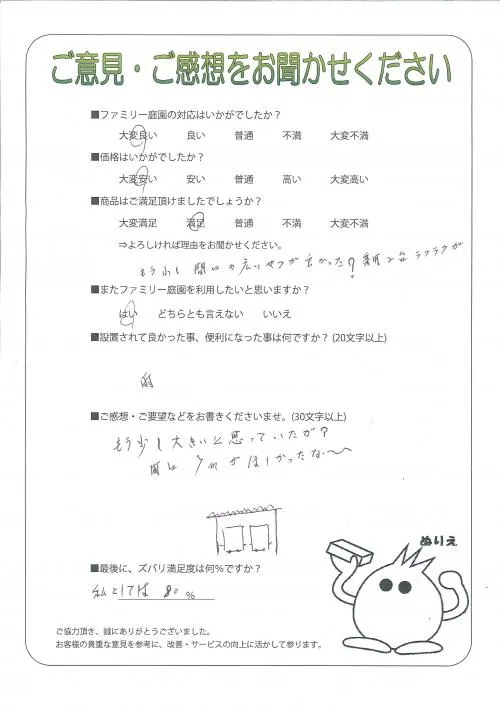 ご意見・ご感想をお聞かせください
■ファミリー庭園の対応はいかがでしたか？
大変良い 良い 普通 不満 大変不満
■価格はいかがでしたか？
大変安い 安い 普通 高い 大変高い
■商品はご満足頂けましたでしょうか？
大変満足 満足 普通 不満 大変不満
⇒よろしければ理由をお聞かせください。
もう少し間口の広いやつが良かった？ 2台ラクラクが
■またファミリー庭園を利用したいと思いますか？
はい どちらとも言えない いいえ
■設置されて良かった事、便利になった事は何ですか？(20文字以上)
雨
■ご感想・ご要望などをお書きくださいませ。(30文字以上)
もう少し大きいと思っていたが？
間口 7mがほしかったな〜
ぬりえ
■最後に、ズバリ満足度は何％ですか？
私としては 80 ％
ご協力頂き、誠にありがとうございました。
お客様の貴重な意見を参考に、改善・サービスの向上に活かして参ります。